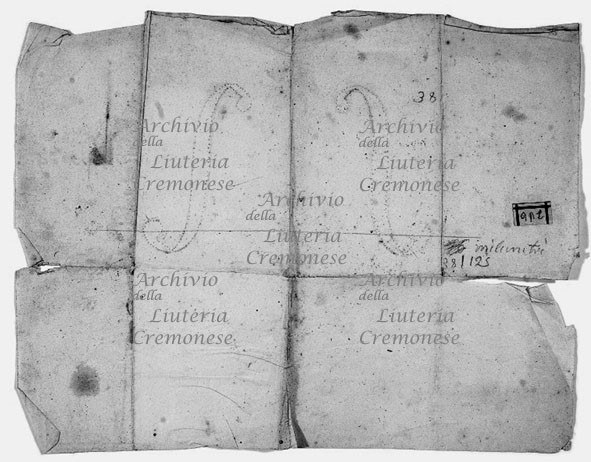 38
Archivio
della
Liuteria
Cremonese
Archivio
della
Liuteria
Cremonese
Archivio
della
Liuteria
Cremonese
Archivio
della
Liuteria
Cremonese
Archivio
della
Liuteria
Cremonese